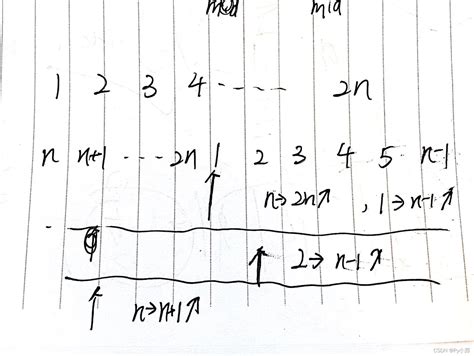 mid mid
1 2 3 4 ----- 2n
n n+1 --- 2n 1 2 3 4 5 n-1
n→2n↗ , 1→n-1↗
2→n-1↗
n→n+1↗